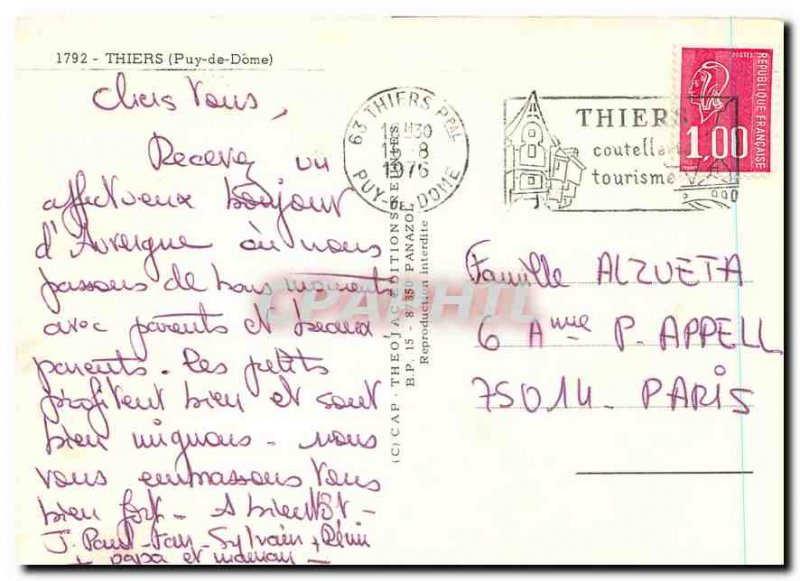 1792 - THIERS (Puy-de-Dôme)
Chers Vous,
Recevez un
affectueux bonjour
d'Auvergne où nous
passons de bons moments
avec parents et beaux
parents. Les petits
profitent bien et sont
bien mignons - nous
vous embrassons tous
bien fort - A bientôt -
J. Paul - Fan - Sylvain + Rémi
+ papa et maman -
63 THIERS PPAL
13-8
1976
PUY-DE-DOME
THIERS
coutell
tourisme
POSTES
REPUBLIQUE FRANÇAISE
1,00
(C) CAP - THEOJAC EDITIONS
B.P. 15 - 87350 PANAZOL
Reproduction interdite
CPARHTL
Famille ALZUETA
6 Ame P. APPELL
75014 - PARIS